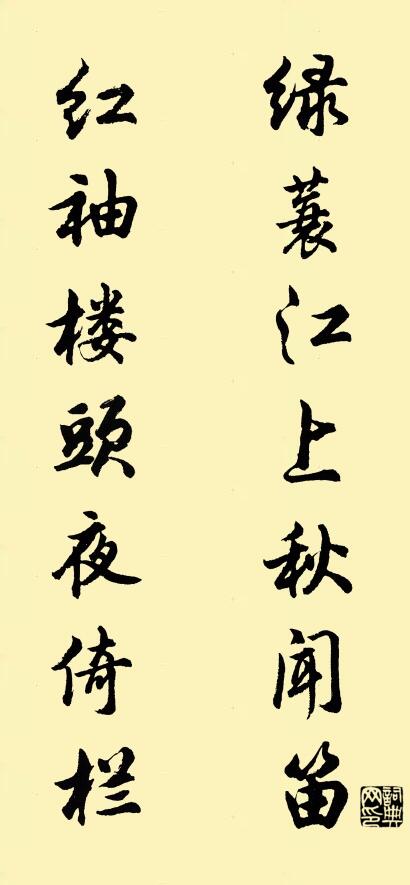 绿蓑江上秋闻笛
红袖楼头夜倚栏
詞典网印